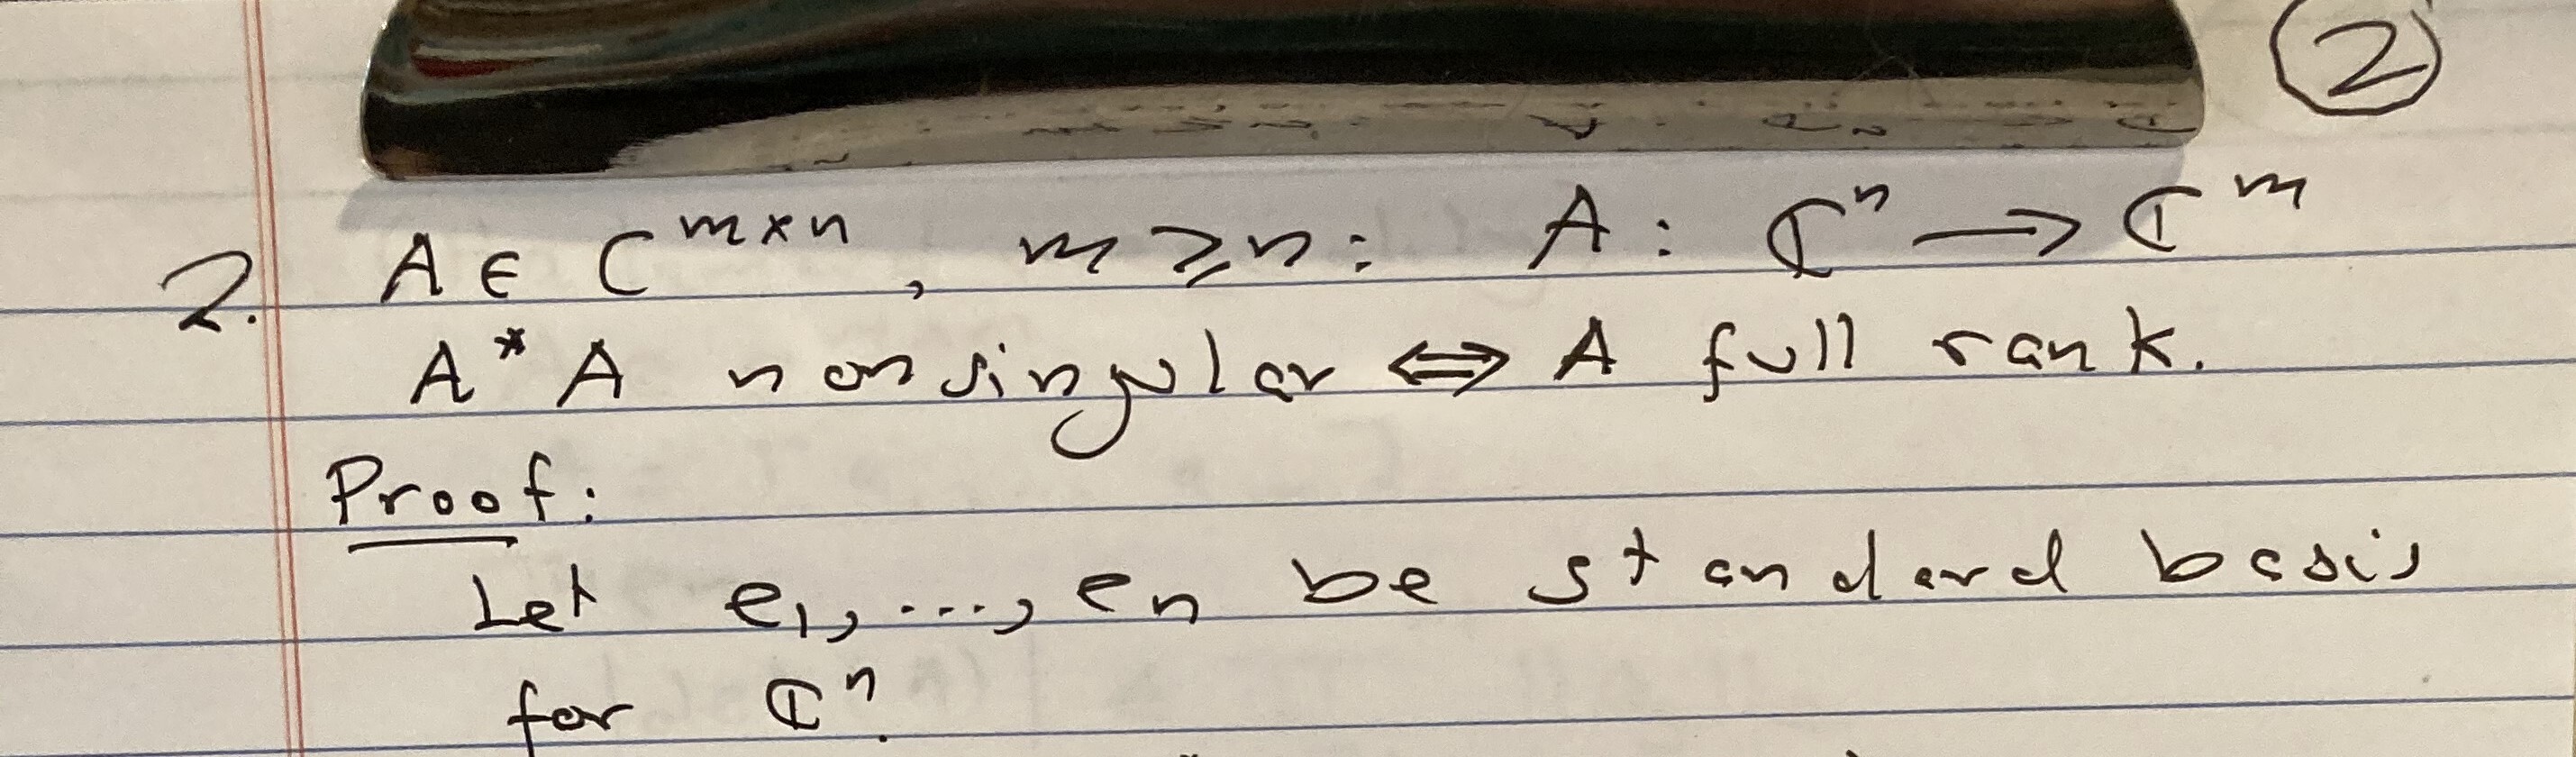 ②
2. A ∈ C^{m×n}, m ≥ n: A: ℂ^n → ℂ^m
A*A nonsingular ⟺ A full rank.
Proof:
Let e₁, ..., eₙ be standard basis
for ℂ^n.